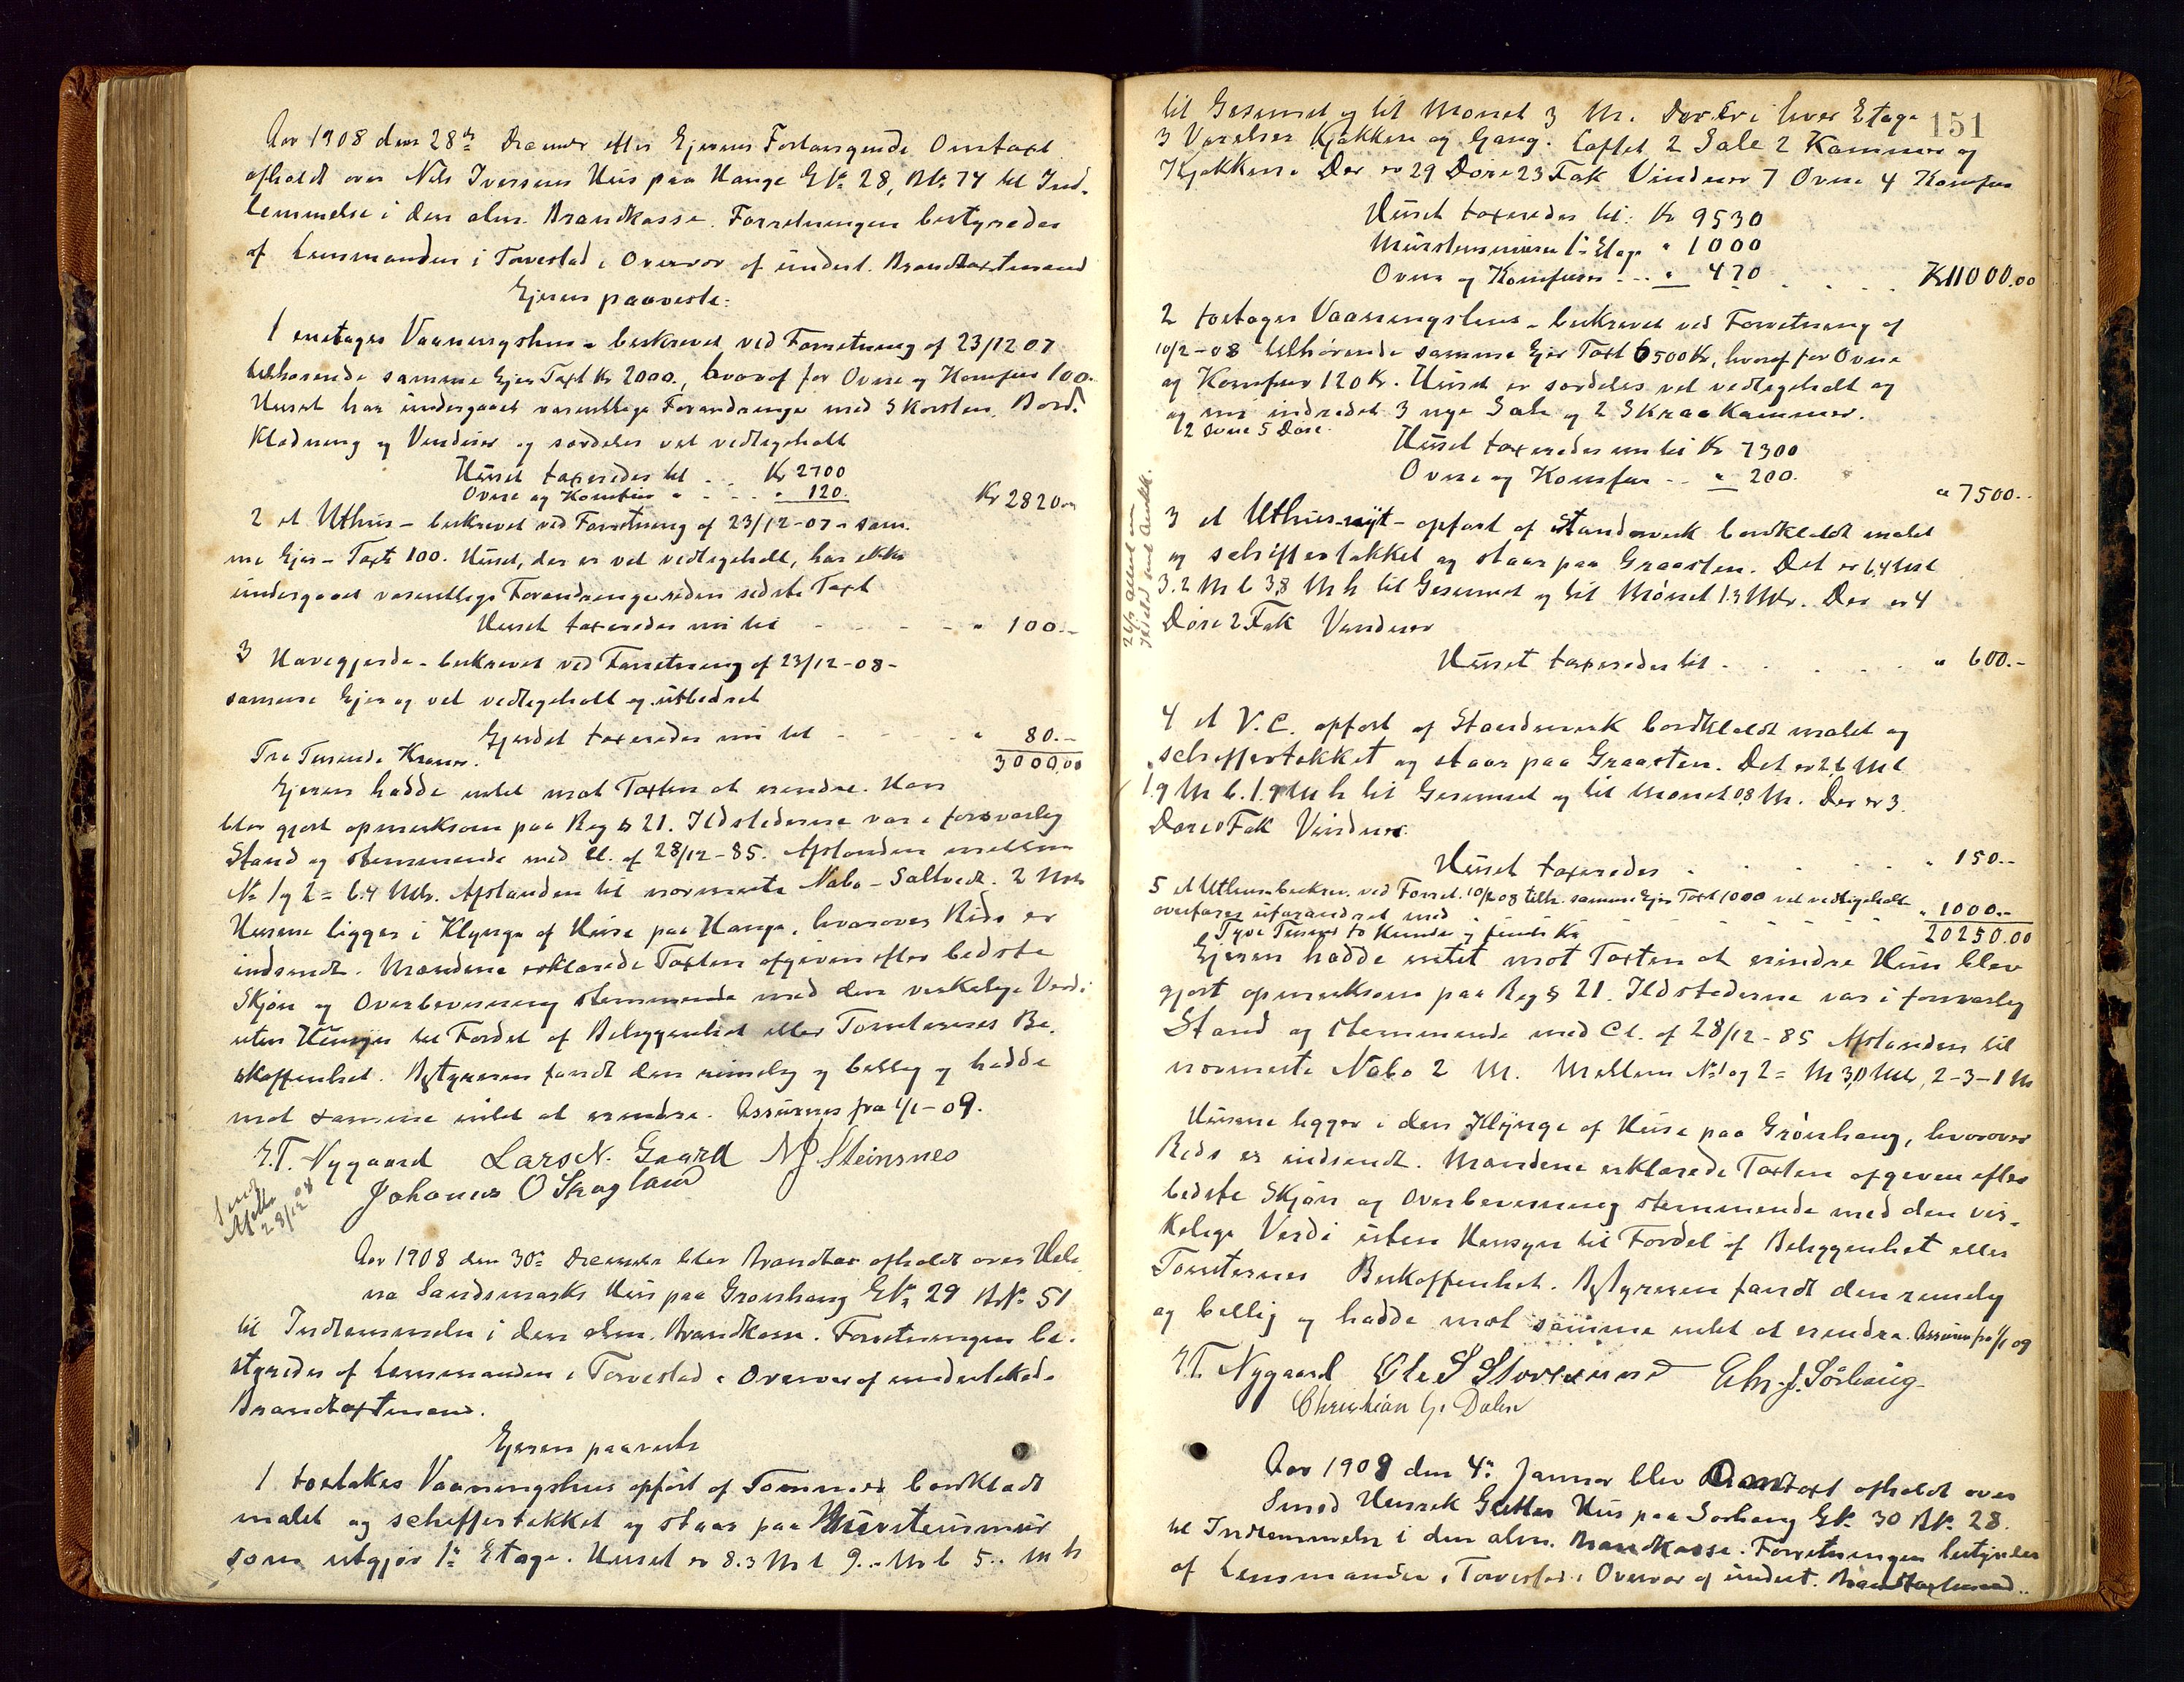 Aar 1908 den 28de December efter Ejerens Forlangende Omtaxt
afholdt over Nils Iversens Hus paa Hauge GNr. 28, BNr. 74 til Ind-
lemmelse i den alm. Brandkasse. Forretningen bestyredes
af Lensmanden i Torvestad i Overvær af undert. Brandtaxtmænd
Ejeren paaviste:
1 enetages Vaaningshus - beskrevet ved Forretning af 23/12 07
tilhørende samme Ejer Taxt Kr 2000., hvoraf for Ovne og Komfur 100.
Huset har undergaaet væsentlige Forandringer med Skorsten, Bord-
klædning og Vinduer og særdeles vel vedligeholdt
Huset taxeredes til . . Kr 2700
Ovne og Komfur " . . " 120. Kr 2820.00
2 et Uthus - beskrevet ved Forretning af 23/12-07 - sam-
me Ejer - Taxt 100. Huset, der er vel vedligeholdt, har ikke
undergaaet væsentlige Forandringer siden sidste Taxt
Huset taxeredes nu til - - - - " 100.-
3 Havegjerde - beskrevet ved Forretning af 23/12-08 -
samme Ejer og vel vedligeholdt og utbedret
Gjerdet taxeredes nu til - - - " 80.-
Tre Tusinde Kroner. 3000.00
Ejeren hadde intet mot Taxten at erindre. Han
blev gjort opmerksom paa Reg § 21. Ildstederne var i forsvarlig
Stand og stemmende med Cl. af 28/12-85. Afstanden mellem
No 1 og 2 = 6.4 Mtr. Afstanden til nærmeste Nabo - Saltvedt. 2 Mtr
Husene ligger i Klynge af Huse paa Hauge, hvorover Rids er
indsendt. Mændene erklærede Taxten afgiven efter bedste
Skjøn og Overbevisning stemmende med den virkelige Verdi
uten Hensyn til Fordel af Beliggenhet eller Tomternes Be-
skaffenhet. Bestyreren fandt den rimelig og billig og hadde
mot samme intet at erindre. Assureres fra 1/1-09.
E.T. Nygaard Lars N. Gaard NJ Steinsnes
Johannes O Skogland
Send
Afskr
28/12 08
Aar 1908 den 30te December blev Brandtax afholdt over Hele-
na Sandsmarks Hus paa Grønhaug GNr. 29 BNr. 51
til Indlemmelse i den alm. Brandkasse. Forretningen be-
styredes af Lensmanden i Torvestad i Overvær af undertekede
Brandtaxtmænd.
Ejeren paaviste
1 toetakes Vaaningshus opført af Tømmer bordklædt
malet og schiffertækket og staar paa Murstensmur
som utgjør 1te Etage. Huset er 8.3 M l 9.- M b 5.. M h
151
til Gesimset og til Mønet 3 M. Der er i hver Etage
3 Værelser Kjøkken og Gang. Loftet 2 Sale 2 Kammer og
Kjøkken. Der er 29 Døre 23 Fak Vinduer 7 Ovne 4 Komfur
Huset taxeredes til: Kr 9530
Murstensmuren 1te Etage " 1000
Ovne og Komfurer - . . " 470 . . . . Kr 11000.00
2 toetages Vaaningshus - beskrevet ved Forretning af
10/2-08 tilhørende samme Ejer Taxt 6500 Kr, hvoraf for Ovne
og Komfur 120 Kr. Huset er særdeles vel vedligeholdt og
og nu indredet 3 nye Sale og 2 Skraakammer.
2 Ovne 5 Døre
Huset taxeredes nu til Kr 7300
Ovne og Komfur - - " 200. " 7500.-
3 et Uthus - nyt - opført af Standerverk bordklædt malet
og schiffertækket og staar paa Graasten. Det er 6.4 M l
3.2 M b 3,8 M h til Gesimset og til Mønet 1.3 Mtr. Der er 4
Døre 2 Fak Vinduer
Huset taxeredes til - . . . . " 600.-
4 et V.C. opført af Standerverk bordklædt malet og
schiffertækket og staar paa Graasten. Det er 2,6 M l
1.9 M b. 1.9 M h til Gesimset og til Mønet 0,8 M. Der er 3
Døre 0 Fak Vinduer.
Huset taxeredes . . . . " 150.-
5 et Uthus beskrev. ved Forret. 10/2 08 tilh. samme Ejer Taxt 1000 vel vedligeholdt
overføres uforandret med " 1000.-
Tyve Tusind to Hundre og femti Kr 20250.00
Ejeren hadde intet mot Taxten at erindre Hun blev
gjort opmerksom paa Reg § 21. Ildstederne var i forsvarlig
Stand og stemmende med Cl. af 28/12-85 Afstanden til
nærmeste Nabo 2 M. Mellem No 1 og 2 = M 3,0 Mtr, 2-3-1 M
Husene ligger i den Klynge af Huse paa Grønhaug, hvorover
Rids er indsendt. Mændene erklærede Taxten afgiven efter
bedste Skjøn og Overbevisning stemmende med den vir-
kelige Verdi uten Hensyn til Fordel af Beliggenhet eller
Tomternes Beskaffenhet. Bestyreren fandt den rimelig
og billig og hadde mot samme intet at erindre. Assureres fra 1/1 09
E.T. Nygaard Ole S Storesund Chr. J. Sörhaug
Christian G. Dalen
Aar 1909 den 4de Januar blev Brandtaxt afholdt over
Smed Henrik Hus paa Sørhaug GNr. 30 BNr. 28.
til Indlemmelse i den alm. Brandkasse. Forretningen bestyredes
af Lensmanden i Torvestad i Overvær af undert. Brandtaxtmænd..